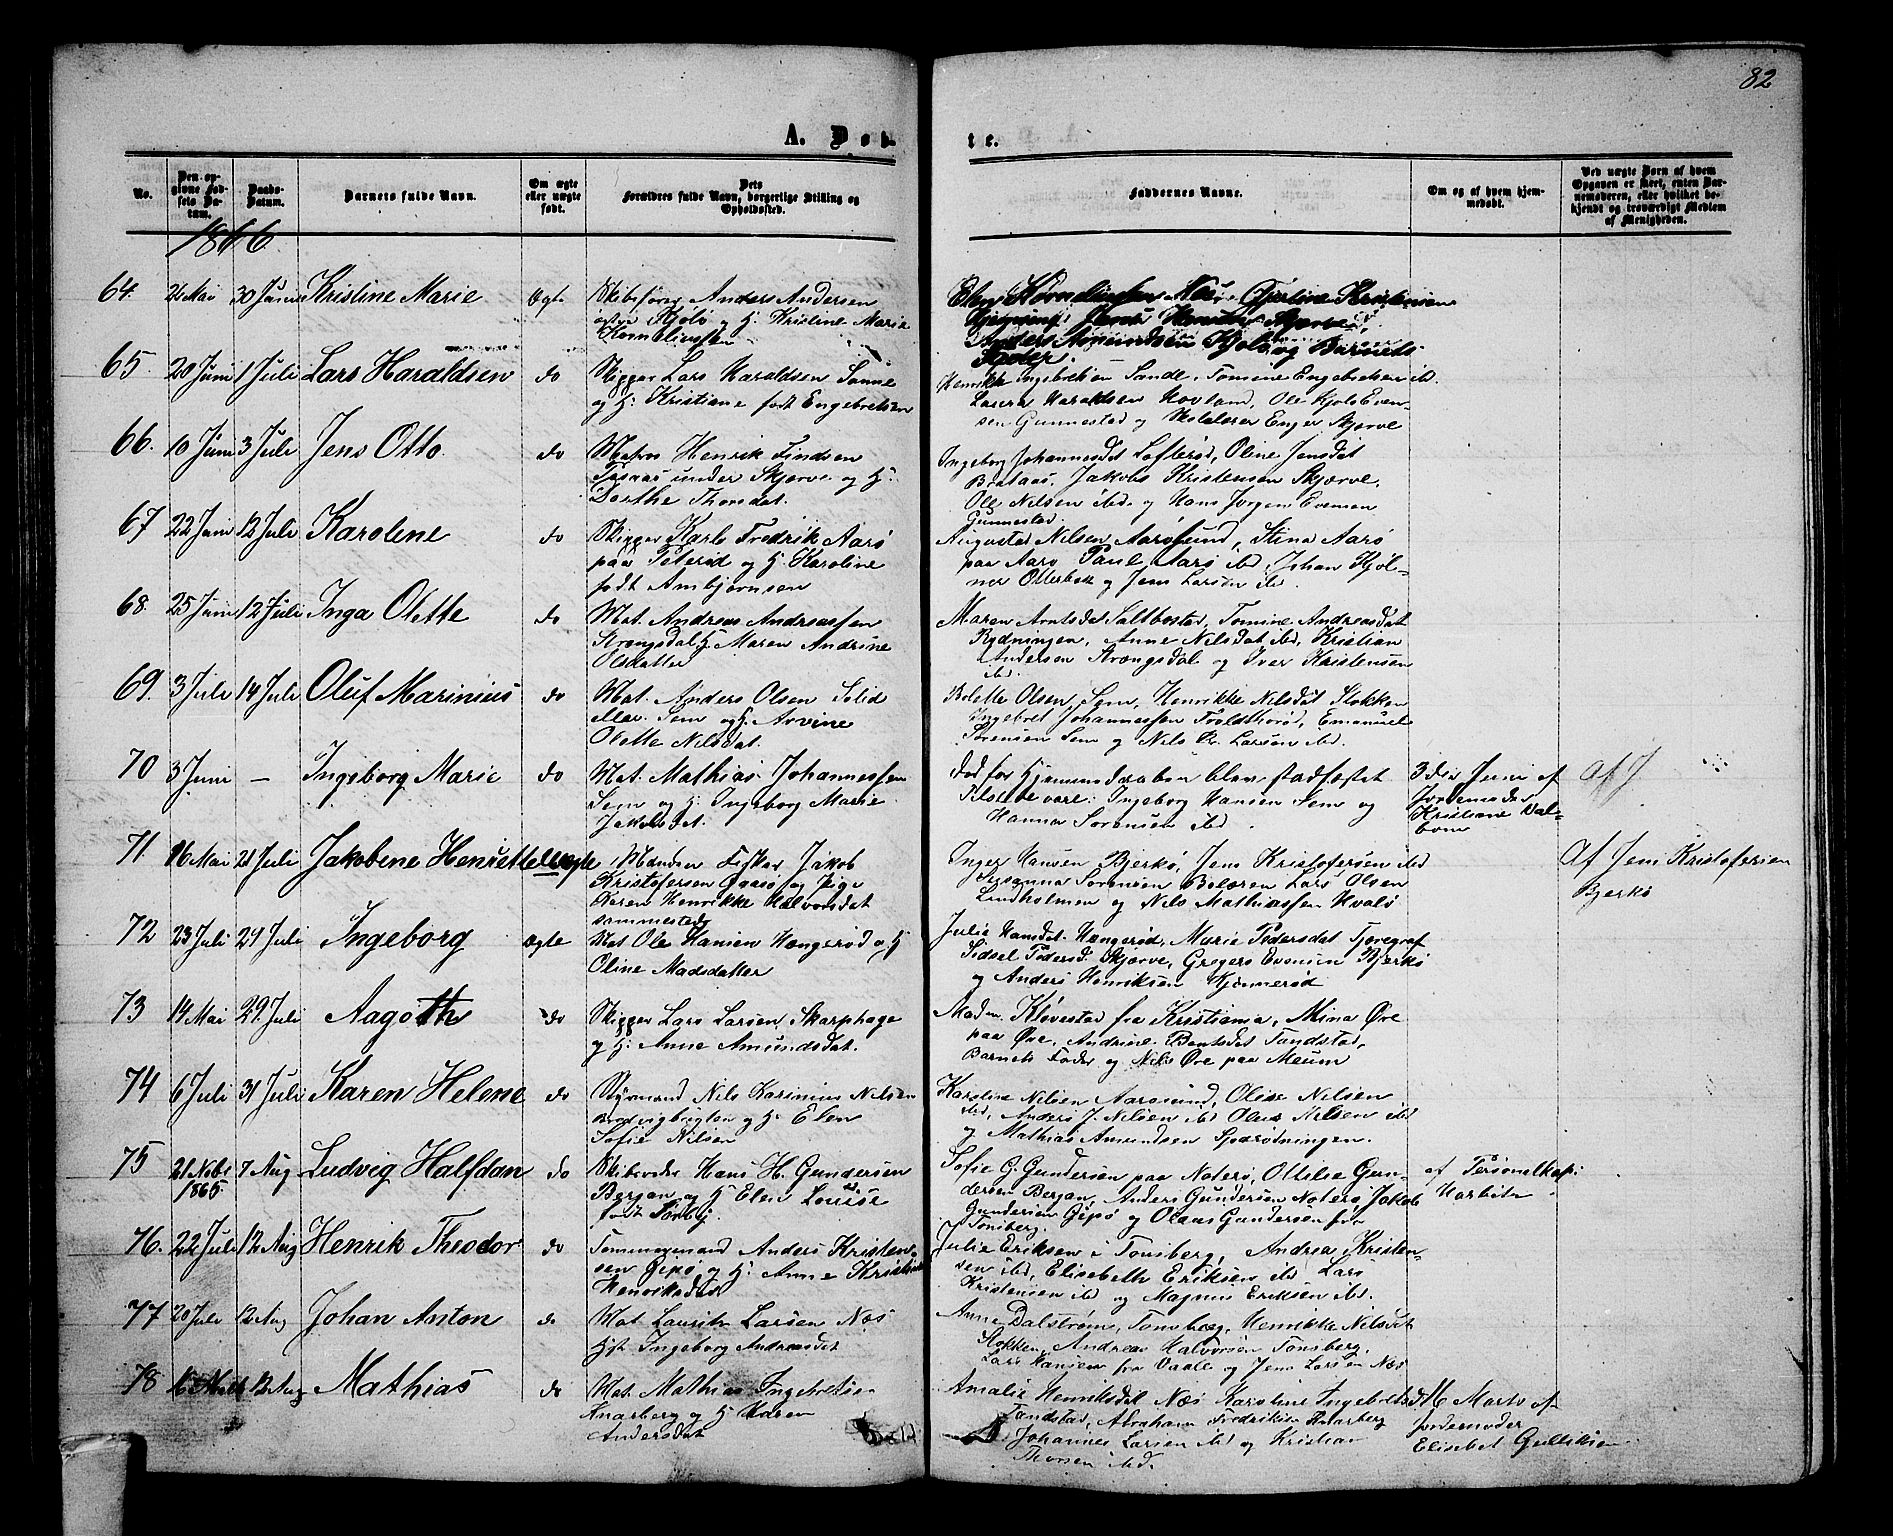 82
A. Døb
te.
No.
Den op-
givne Fød-
sels Da-
tum.
Daabs-
Datum.
Barnets fulde Navn.
Om ægte
eller uægte
født.
Dets
Forældres fulde Navn, borgerlige Stilling og
Opholdssted.
Faddernes Navne.
Om og af hvem hjem-
medøbt.
Ved uægte Børn af hvem
Opgaven er skeet, enten Bar-
nemoderen, eller hvilket be-
kjendt og troværdigt Medlem
af Menigheden.
1866
64. 30 Juni Kristine Marie Ægte Skibsfører Anders Andersen
Kjølø og H. Kristine Marie
Korneliussen
Anders Amundsen Kjølø og Barnets
Fader.
65. 20 Juni 1 Juli Lars Haraldsen do Skipper Lars Haraldsen Sanne
og H. Kristiane født Engebretsen
Henrikke Ingebretsen Sande, Tomine Engebretsen ibd.
Laura Haraldsen Hovland, Ole Kjølø Even-
sen Gunnestad og Skolelærer Enger Skjærve
66. 10 Juni 3 Juli Jens Otto do Matros Henrik Findsen
under Skjærve og H.
Dorthe Thorsdat.
Ingeborg Johannesdat Lofterød, Oline Jensdat
Brataas, Jakob Kristensen Skjærve,
Ole Nilsen ibd. og Hans Jørgen Evensen
Gunnestad.
67 22 Juni 12 Juli Karolene do Skipper Karl Fredrik Aarø
paa Peterød og H. Karoline
født Ambjørnsen
Augusta Nilsen Aarøsund, Stina Aarø
paa Aarø Paul Aarø ibd, Johan Kjøl-
ner Otterbek og Jens Larsen ibd.
68. 25 Juni 12 Juli Inga Olette do Mat. Andreas Andreassen
Strængsdal H. Maren Andrine
Olsdatter
Maren Arntsdat Saltbostad, Tomine Andreasdat
Rydningen, Anne Nilsdat ibd, Kristian
Andersen Strængsdal og Iver Kristensen
ibd.
69. 3 Juli 14 Juli Oluf Marinius do Mat. Anders Olsen Solid
eller Sem og H. Arvine
Olette Nilsdat.
Bolette Olsen Sem, Henrikke Nilsdat Stokken
Ingebret Johannessen Troldthorød, Emanuel
Sørensen Sem og Nils Kr. Larsen ibd.
70 3 Juni — Ingeborg Marie do Mat. Mathias Johannessen
Sem og H. Ingeborg Marie
Jakobsdat.
død før Hjemmedaaben blev stadfæstet
Tilstede vare: Ingeborg Hansen Sem og
Hanna Sørensen ibd.
3 die Juni af
Jordemoder
Kristiane Dal-
bom
Af J
71. 16 Mai 21 Juli Jakobene Henriette uægte Manden Fisker Jakob
Kristofersen Gaasø og Pige
Karen Henrikke Halvorsdat
sammesteds
Inger Hansen Bjerkø, Jens Kristofersen ibd
Susanna Sørensen Bolæren Lars Olsen
Lindholmen og Nils Mathiassen Hvalø
Af Jens Kristofersen
Bjerkø
72 23 Juli 29 Juli Ingeborg ægte Mat Ole Hansen Hængerød og H.
Oline Madsdatter
Julie Hansdat Hængerød, Marie Pedersdat Tjøregraf
Sidsel Pedersd. Skjærve, Gregers Evensen Bjerkø
og Anders Henriksen Kjønnerød
73 14 Mai 29 Juli Aagoth do Skipper Lars Larsen Skarphage
og H. Anne Amundsdat.
Madm. Kløvestad fra Kristiania, Mina Øre
paa Øre, Andrine Bentsdat Tandstad,
Barnets Fader og Nils Øre paa Meum
74 6 Juli 31 Juli Karen Helene do Styrmand Nils Karinius Nilsen
og H. Elen
Sofie Nilsen
Karoline Nilsen Aarøsund, Olise Nilsen
ibd, Anders J. Nilsen ibd Olaus Nilsen ibd
og Mathias Amundsen Sparødningen.
75 21 Novbr 1865. 7 Aug Ludvig Halfdan do Skibsreder Hans H. Gundersen
Berjan og H. Elen Lovise
født Sørby.
Sofie G. Gundersen paa Noterø, Ottilie Gun-
dersen Berjan, Anders Gundersen Noterø, Jakob
Gundersen Gipø og Olaus Gundersen fra
Tønsberg.
af Personelkap:
Harbitz
76. 22 Juli 12 Aug Henrik Theodor do Tømmermand Anders Kristen-
sen Gipø og H. Anne Kristine
Henriksdat
Julie Eriksen i Tønsberg, Andrea Kristen-
sen ibd, Elisebeth Eriksen ibd Lars
Kristensen ibd og Magnus Eriksen ibd.
77 20 Juli 12 Aug Johan Anton do Mat. Laurits Larsen Næs
Hst Ingeborg Andreasdat
Anne Dalstrøm, Tønsberg, Henrikke Nilsdat
Stokken, Andreas Halvorsen Tønsberg,
Lars Hansen fra Vaale og Jens Larsen Næs
78 12 Aug Mathias do Mat. Mathias Ingebretsen
Knarberg og H Karen
Andersdat
Amalie Henriksdat Næs Karoline Ingebretsd.
Tandstad, Abraham Fredriksen Knarberg
Johannes Larsen ibd og Kristian
Thorsen ibd.
16 Marts af
Jordemoder
Elisabet Gulliksen